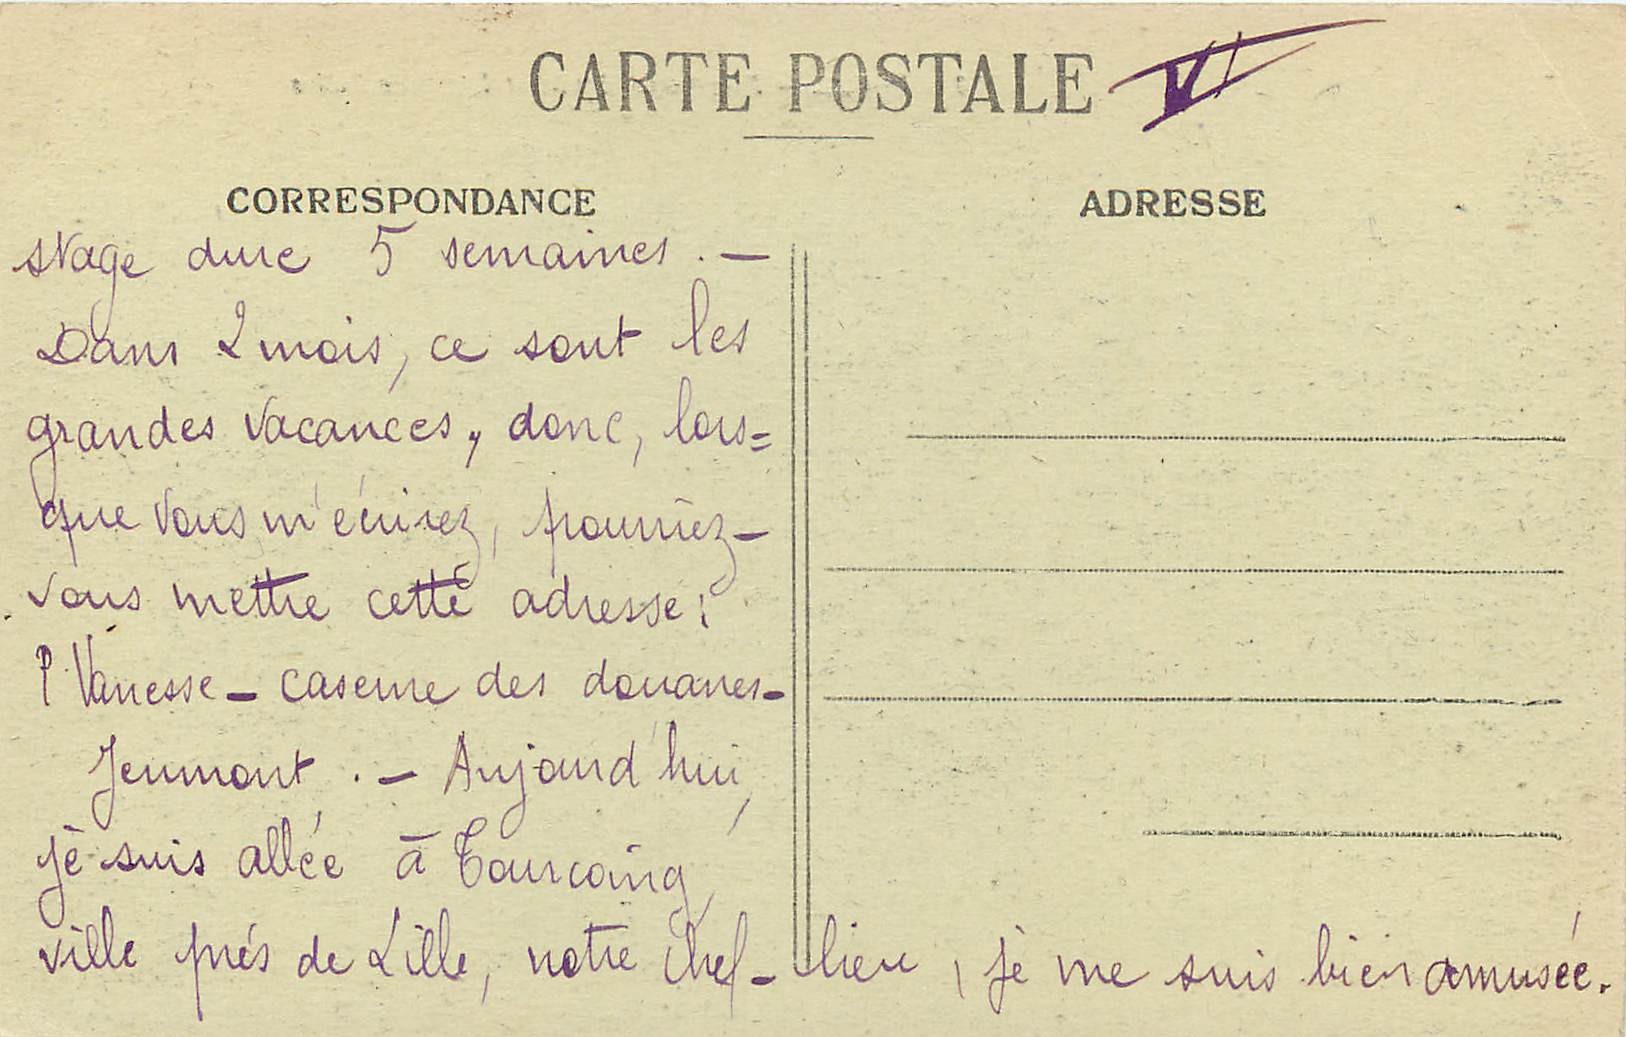 CARTE POSTALE VI
CORRESPONDANCE
ADRESSE
stage dure 5 semaines. —
Dans 2 mois, ce sont les
grandes vacances, donc, lors=
que vous m'écrirez, pourriez-
vous mettre cette adresse:
P Vanesse - caserne des douanes-
Jeumont. — Aujourd'hui,
je suis allée à Tourcoing,
ville près de Lille, notre chef-lieu, je me suis bien amusée.